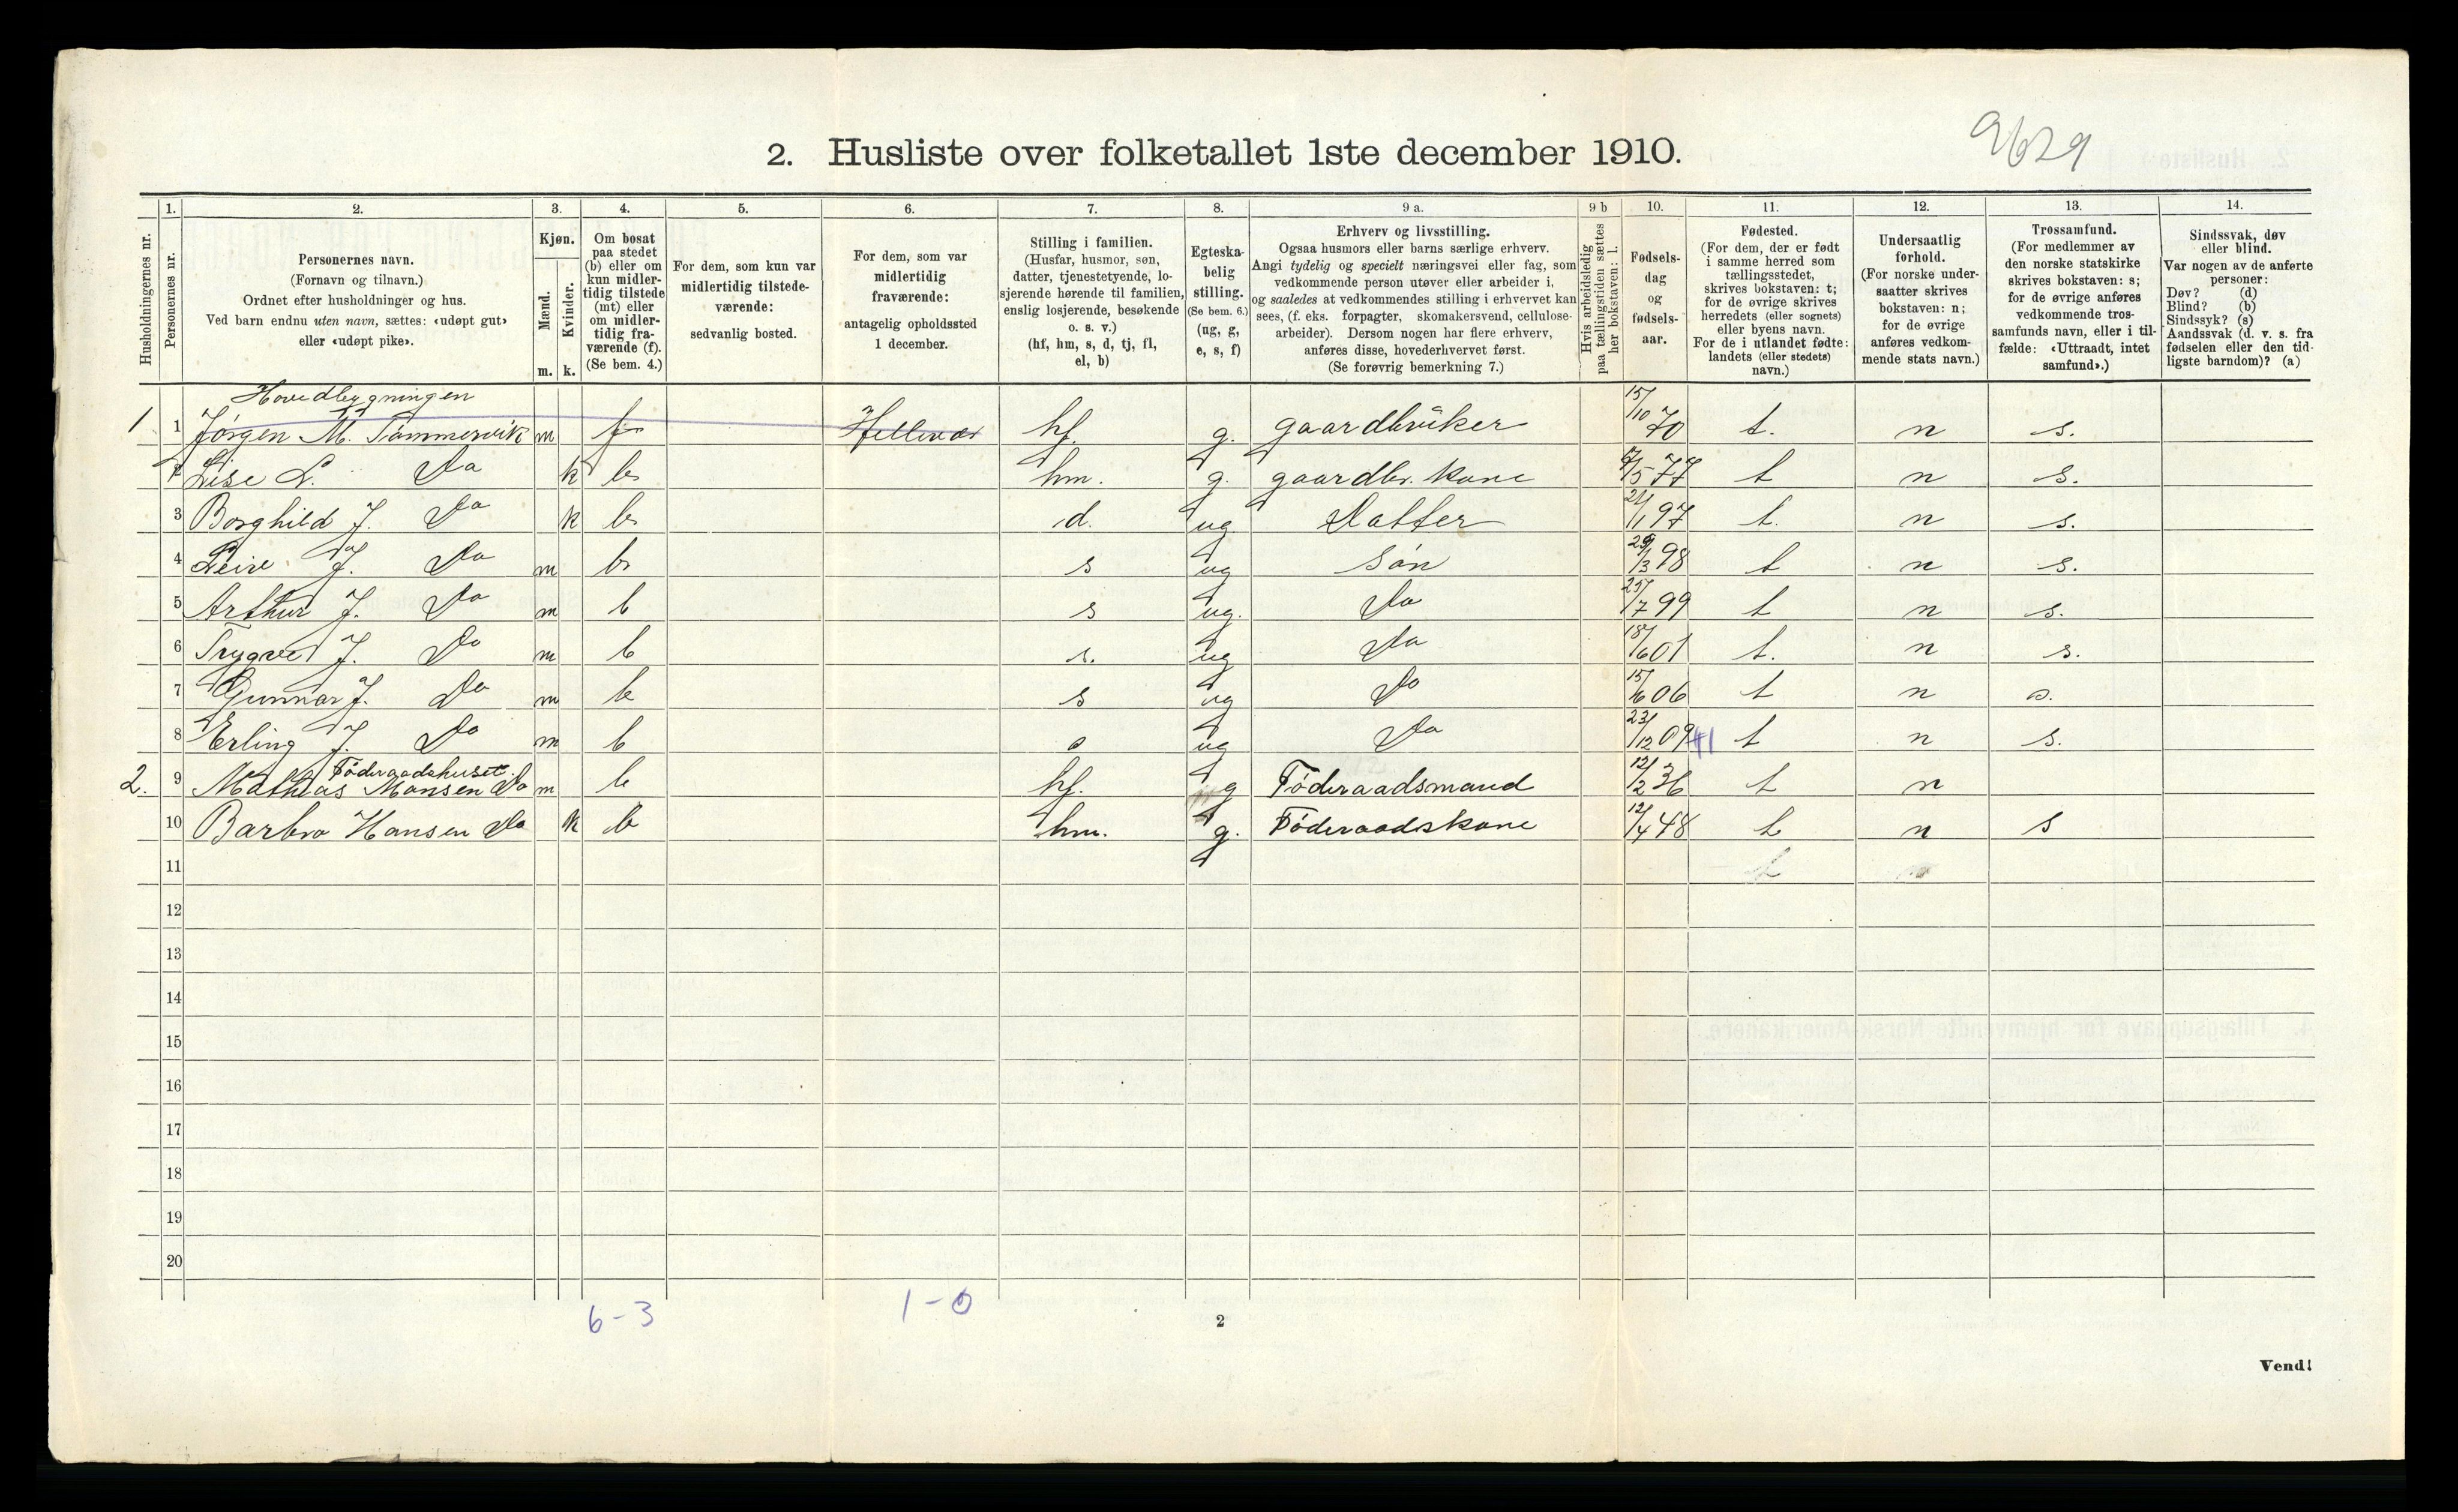 9629
2. Husliste over folketallet 1ste december 1910.
1. 2. 3. 4. 5. 6. 7. 8. 9 a. 9 b 10. 11. 12. 13. 14.
Husholdningernes nr.
Personernes nr.
Personernes navn.
(Fornavn og tilnavn.)
Ordnet efter husholdninger og hus.
Ved barn endnu uten navn, sættes: «udøpt gut»
eller «udøpt pike».
Kjøn.
Mænd.
Kvinder.
m. k.
Om bosat
paa stedet
(b) eller om
kun midler-
tidig tilstede
(mt) eller
om midler-
tidig fra-
værende (f).
(Se bem. 4.)
For dem, som kun var
midlertidig tilstede-
værende:
sedvanlig bosted.
For dem, som var
midlertidig
fraværende:
antagelig opholdssted
1 december.
Stilling i familien.
(Husfar, husmor, søn,
datter, tjenestetyende, lo-
sjerende hørende til familien,
enslig losjerende, besøkende
o. s. v.)
(hf, hm, s, d, tj, fl,
el, b)
Egteska-
belig
stilling.
(Se bem. 6.)
(ug, g,
e, s, f)
Erhverv og livsstilling.
Ogsaa husmors eller barns særlige erhverv.
Angi tydelig og specielt næringsvei eller fag, som
vedkommende person utøver eller arbeider i,
og saaledes at vedkommendes stilling i erhvervet kan
sees, (f. eks. forpagter, skomakersvend, cellulose-
arbeider). Dersom nogen har flere erhverv,
anføres disse, hovederhvervet først.
(Se forøvrig bemerkning 7.)
Hvis arbeidsledig
paa tællingstiden sættes
her bokstaven: l.
Fødsels-
dag
og
fødsels-
aar.
Fødested.
(For dem, der er født
i samme herred som
tællingsstedet,
skrives bokstaven: t;
for de øvrige skrives
herredets (eller sognets)
eller byens navn.
For de i utlandet fødte:
landets (eller stedets)
navn.)
Undersaatlig
forhold.
(For norske under-
saatter skrives
bokstaven: n;
for de øvrige
anføres vedkom-
mende stats navn.)
Trossamfund.
(For medlemmer av
den norske statskirke
skrives bokstaven: s;
for de øvrige anføres
vedkommende tros-
samfunds navn, eller i til-
fælde: «Uttraadt, intet
samfund».)
Sindssvak, døv
eller blind.
Var nogen av de anførte
personer:
Døv? (d)
Blind? (b)
Sindssyk? (s)
Aandssvak (d. v. s. fra
fødselen eller den tid-
ligste barndom)? (a)
Hovedbygningen
1 1 Jørgen M. Tømmervik m f Hellevær hf. g. gaardbrüker 15/10 70 t. n s.
2 Lise L. Do k b hm. g. gaardbr. kone 77 t n s.
3 Borghild J. Do k b d. ug. Datter 21/1 97 t. n s.
4 J. Do m b s ug Søn 29/3 98 t n s.
5 Arthur J. Do m b s ug. Do 25/7 99 t n s.
6 Trygve J. Do m b s. ug Do 18/6 01 t. n s.
7 Gunnar J. Do m b s ug Do 15/6 06 t n s.
8 Erling J. Do m b s ug Do 23/12 09 t n s.
Føderaadshuset.
2. 9 Mathias Monsen Do m b hf. g Føderaadsmand 12/2 36 t n
10 Barbro Hansen Do k b hm. g. Føderaadskone 12/4 48 t n s
11 t
12
13
14
15
16
17
18
19
20
6-3 1-0
2
Vend!